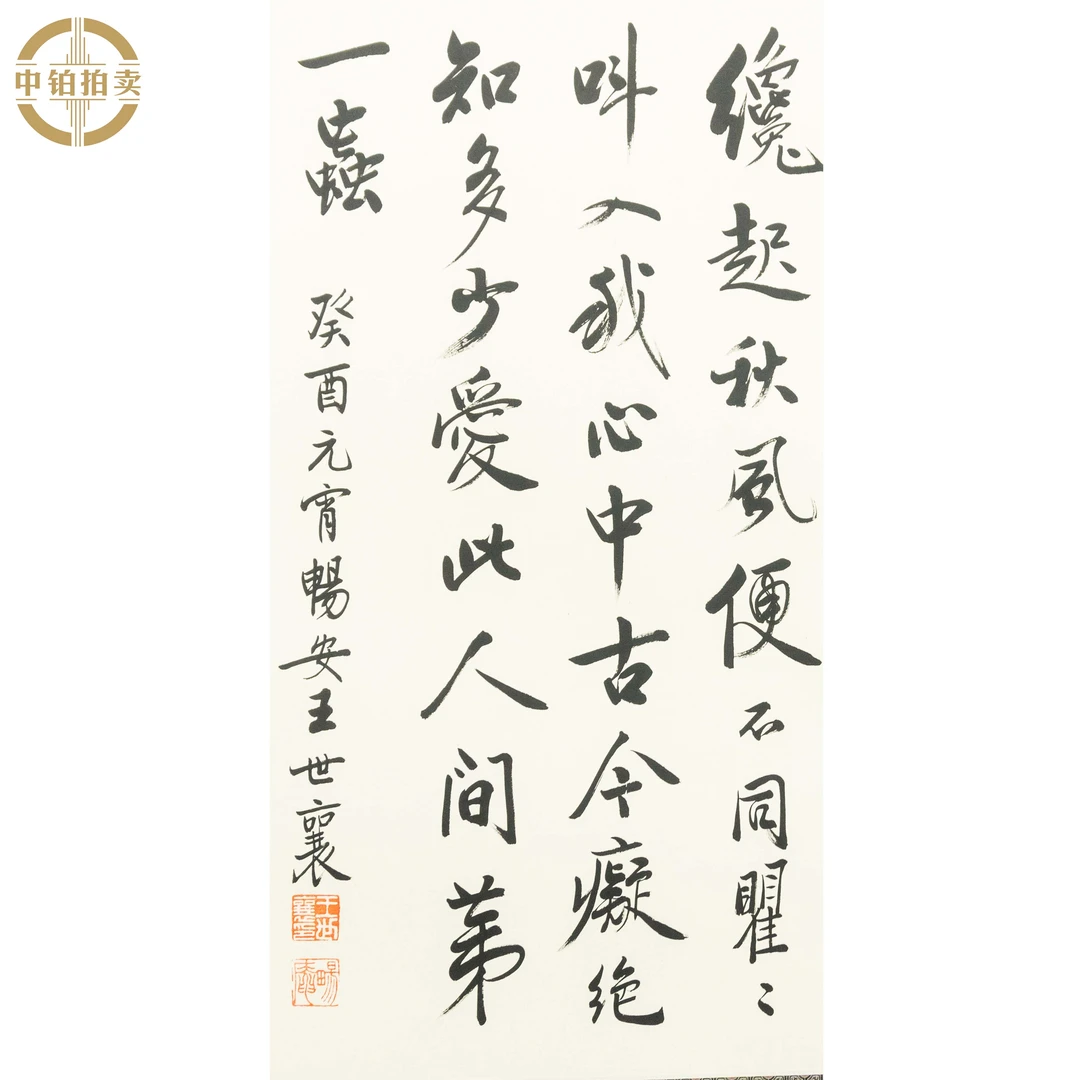 中铂拍卖
纔起秋風便不同瞿〻
叫入我心中古今癡绝
知多少愛此人间苐
一蟲
癸酉元宵暢安王世襄
王世襄印
暢安